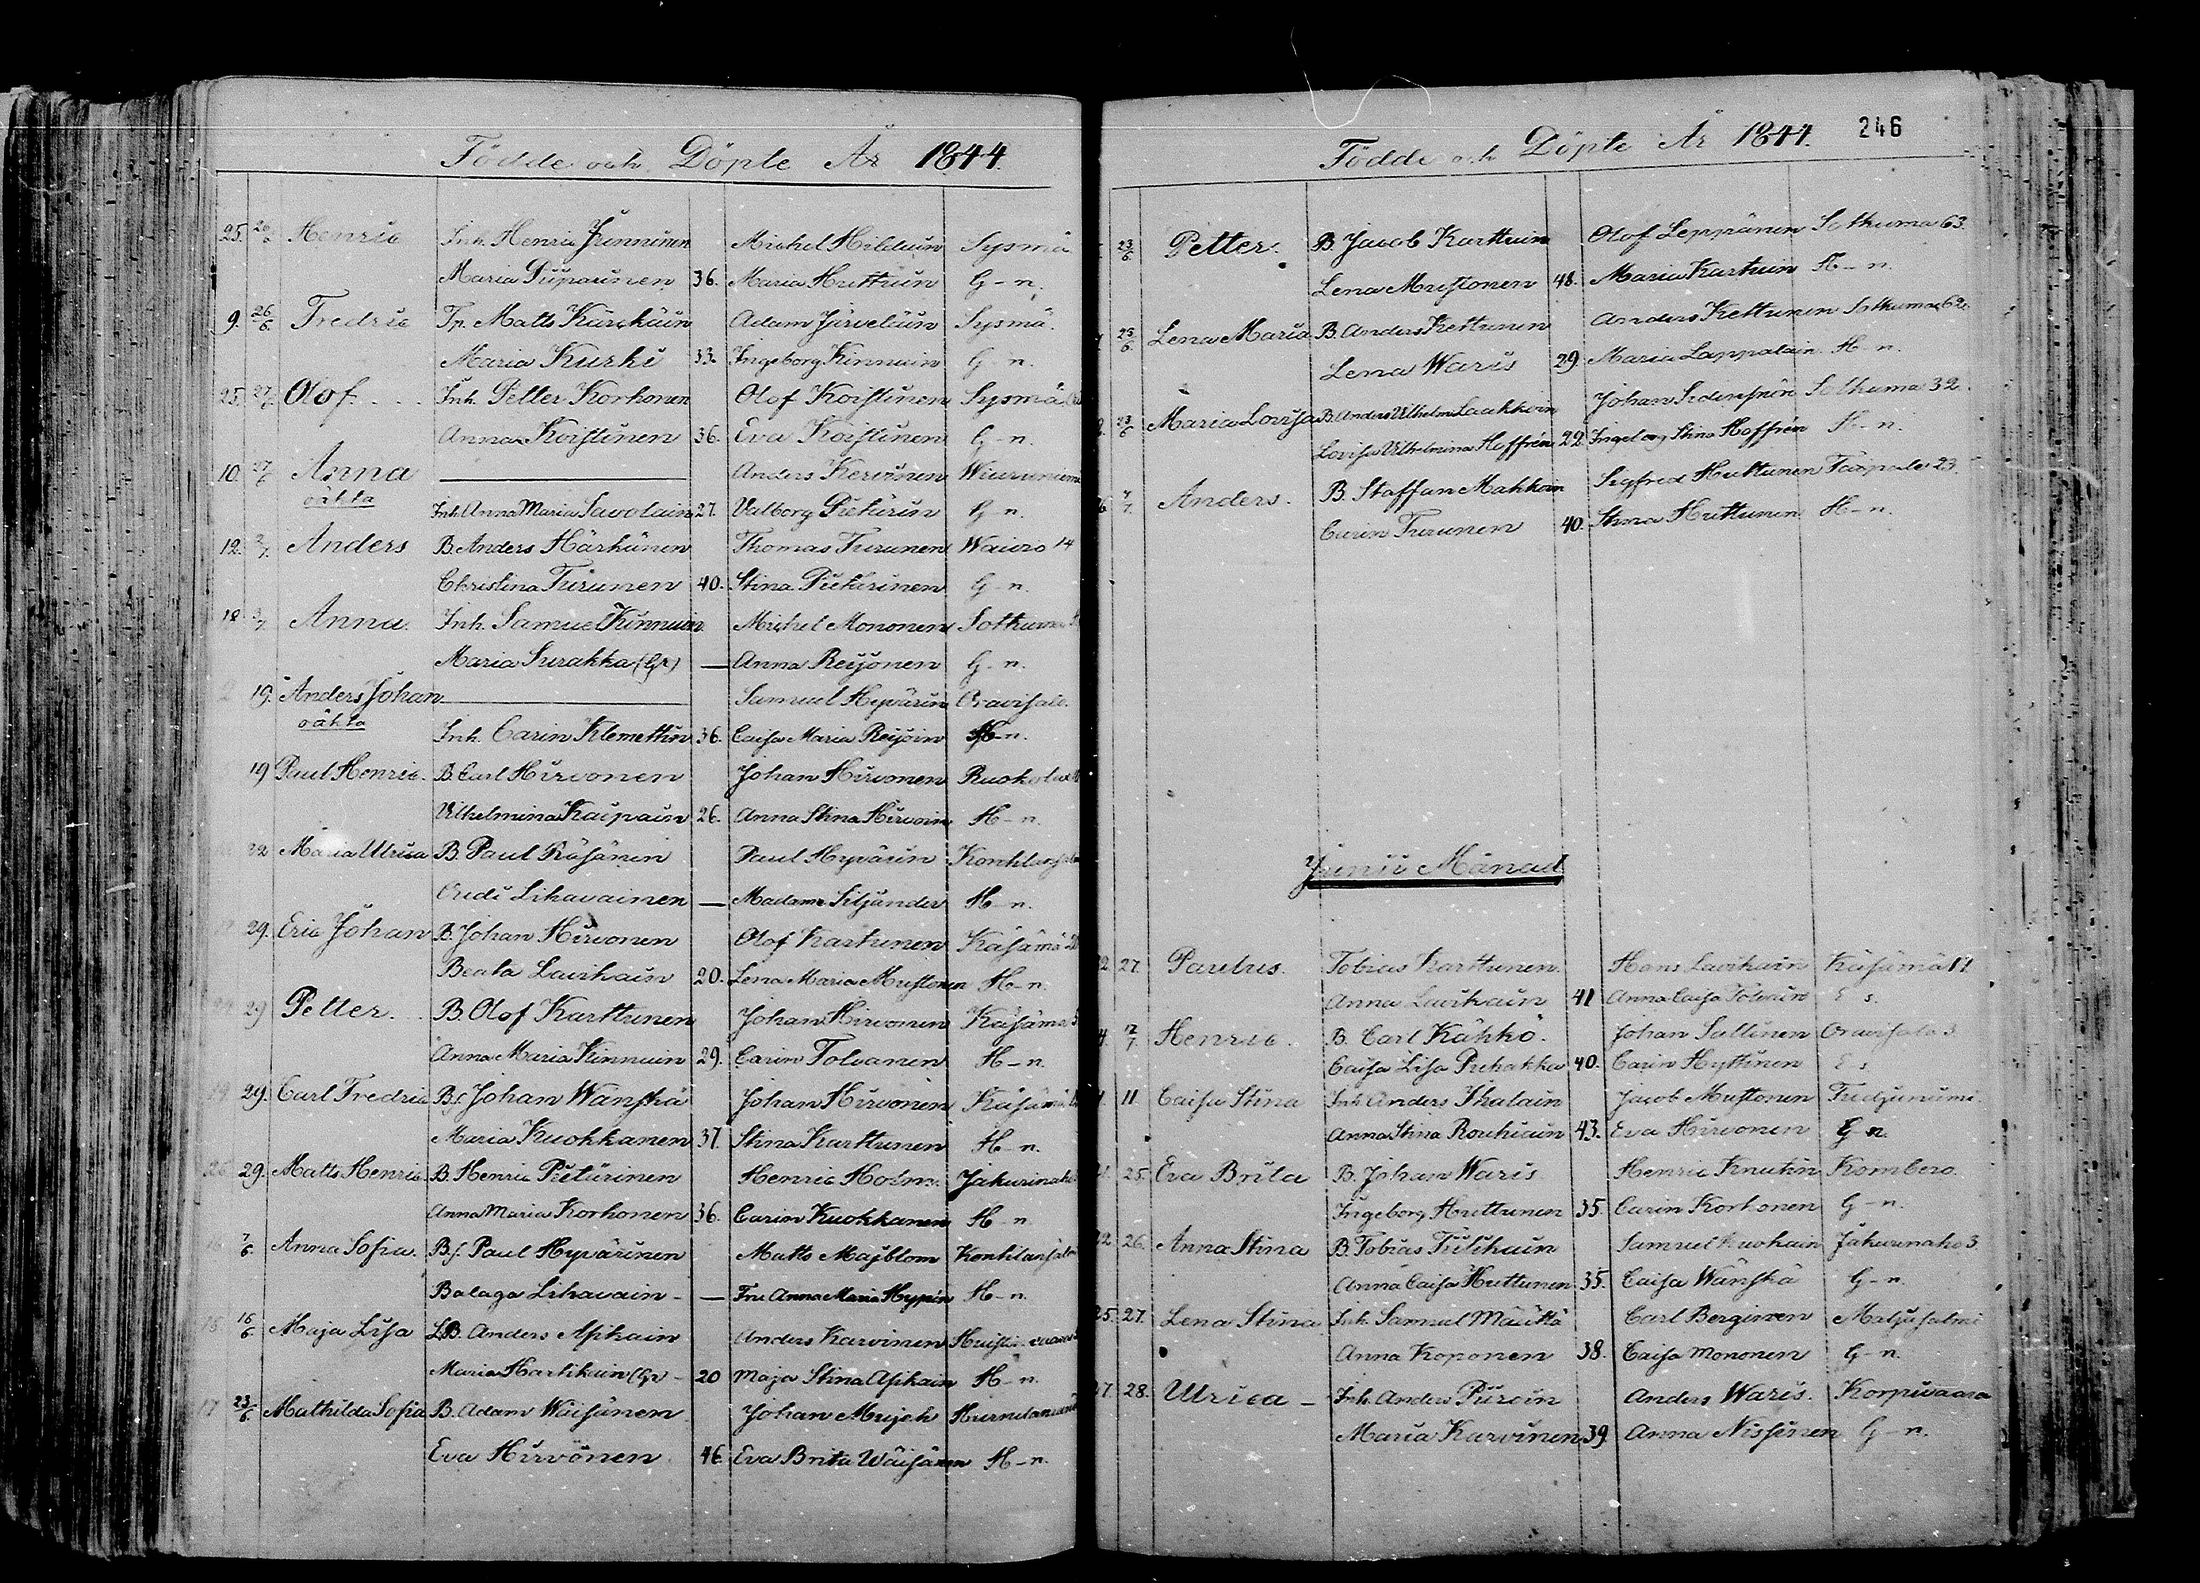 Födde och Döpte År 1844.
25. 26/6 Henric Inh. Henric Junnunen Michel Hildun Sysmä
Maria Piiparinen 36. Maria Huttuin G-n.
9. 26/6 Fredric Tp. Matts Kärkäin Adam Järveläin Sysmä.
Maria Kurki 33. Ingeborg Kinnuin G n.
25. 27/6 Olof Inh. Petter Korhonen Olof Koistinen Sysmä
Anna Koistinen 36. Eva Koistinen G-n.
10. 27/6 Anna Anders Kervinen
oäkta Inh. Anna Maria Savolain 27. Valborg Piekärin G-n.
12. 3/7. Anders B. Anders Härkünen Thomas Turunen Waivio 14
Christina Turunen 40. Stina Piekärinen G-n.
12. 3/7. Anna Inh. Samuel Kinnuin Michel Mononen Sotkuma
Maria Surakka (Gr) — Anna Reijonen G-n.
19. Anders Johan Samuel Hyvärin Oravisalo
oäkta Inh. Carin Klemettin 36. Caisa Maria Reijoin H-n.
19 Paul Henric B. Carl Hirvonen Johan Hirvonen
Vilhelmina Kaipain 26. Anna Stina Hirvoin H-n.
22 Maria Ulrica B. Paul Räsänen Paul Hyvärin
Oudi Lihavainen — Madame Siljander H-n.
29. Eric Johan B. Johan Hirvonen Olof Kartunen Käsämä
Beata Lavikain 20. Lena Maria Mustonen H-n.
29 Petter B. Olof Karttunen Johan Hirvonen Käsämä
Anna Maria Kinnuin 29. Carin Tolvanen H-n.
29. Carl Fredric Bf. Johan Wänskä Johan Hirvonen Käsämä
Maria Kuokkanen 37. Stina Karttunen H-n.
29. Matts Henric B. Henric Pietarinen Henric Holm Jakurinaho
Anna Maria Korhonen 36. Carin Kuokkanen H-n
7/6 Anna Sofia Bf. Paul Hyvärinen Matts Majblom
Balaga Lihavain — Fru Anna Maria Hypén H-n.
16/6 Maja Lisa LB. Anders Asikain Anders Karvinen
Maria Hartikain (Gr) 20 Maja Stina Asikain H-n.
17 23/6 Mathilda Sofia B. Adam Wäisänen Johan Mujeh
Eva Hirvonen 46. Eva Brita Wäisänen H-n.
246
Födde och Döpte År 1844.
23/6 Petter. B. Jacob Karttuin Olof Leppänen Sotkuma 63.
Lena Mustonen 48. Maria Kartuin H-n.
23/6. Lena Maria B. Anders Kettunen Anders Kettunen Sotkuma 62
Lena Waris 29. Maria Lappalain H-n.
23/6 Maria Lovisa B. Anders Vilhelm Laakkoin Johan Sotkuma 32.
Lovisa Vilhelmina Hoffrén 22. Ingeborg Stina Hoffrén H-n.
7/7. Anders. B. Staffan Mahkoin Sigfred Huttunen Taipale 23.
Carin Turunen 40. Stina Huttunen H-n.
Junii Månad
22. 27. Paulus. Tobias Karttunen Hans Lavikain Käsämä 11
Anna Lavikain 41 Anna Caisa Tolvain E s.
7/7 Henric B. Carl Kähkö Johan Sallinen Oravisalo 3
Caisa Lisa Puhakka 40. Carin Hyttinen E s
11 Caisa Stina Inh. Anders Ikalain Jacob Mustonen
Anna Stina Rouhiain 43. Eva Hirvonen G n.
25. Eva Brita B. Johan Waris Henric Knutin Kombero
Ingeborg Huttunen 35. Carin Korhonen G-n.
22 26. Anna Stina B. Tobias Tiilikain Samuel Kuokain Jakurinaho 3.
Anna Caisa Huttunen 35. Caisa Wänskä G-n.
25. 27. Lena Stina Inh. Samuel Määttä Carl Berginen
Anna Koponen 38. Caisa Mononen G-n.
27 28. Ulrica — Inh. Anders Piiroin Anders Waris Korpivaara
Maria Karvinen 39. Anna Nissinen G-n.